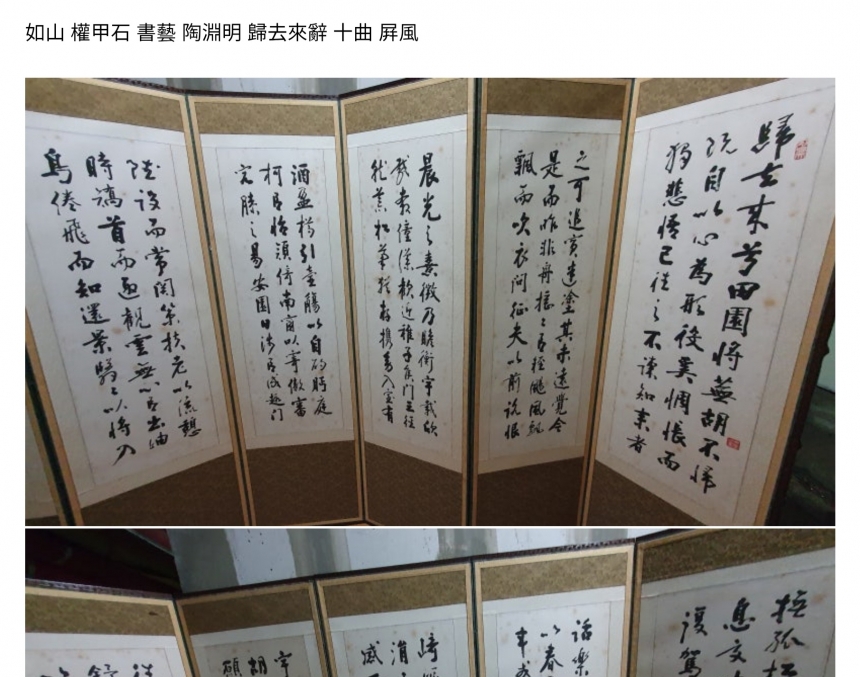 如山 權甲石 書藝 陶淵明 歸去來辭 十曲 屛風
歸去来兮田園將蕪胡不歸
既自以心爲形役奚惆悵而
獨悲悟已往之不諫知来者
之可追實迷塗其未遠覺今
是而昨非舟搖〻以輕颺風飄
飄而吹衣問征夫以前路恨
晨光之熹微乃瞻衡宇載欣
載奔僮僕歡迎稚子候門三徑
就荒松菊猶存携幼入室有
酒盈樽引壺觴以自酌眄庭
柯以怡顔倚南窗以寄傲審
容膝之易安園日涉以成趣門
雖設而常関策扶老以流憩
時矯首而遐觀雲無心以出岫
鳥倦飛而知還景翳〻以將入
撫孤松
息交
復駕
話樂
以春
崎
涓
感
宇
胡